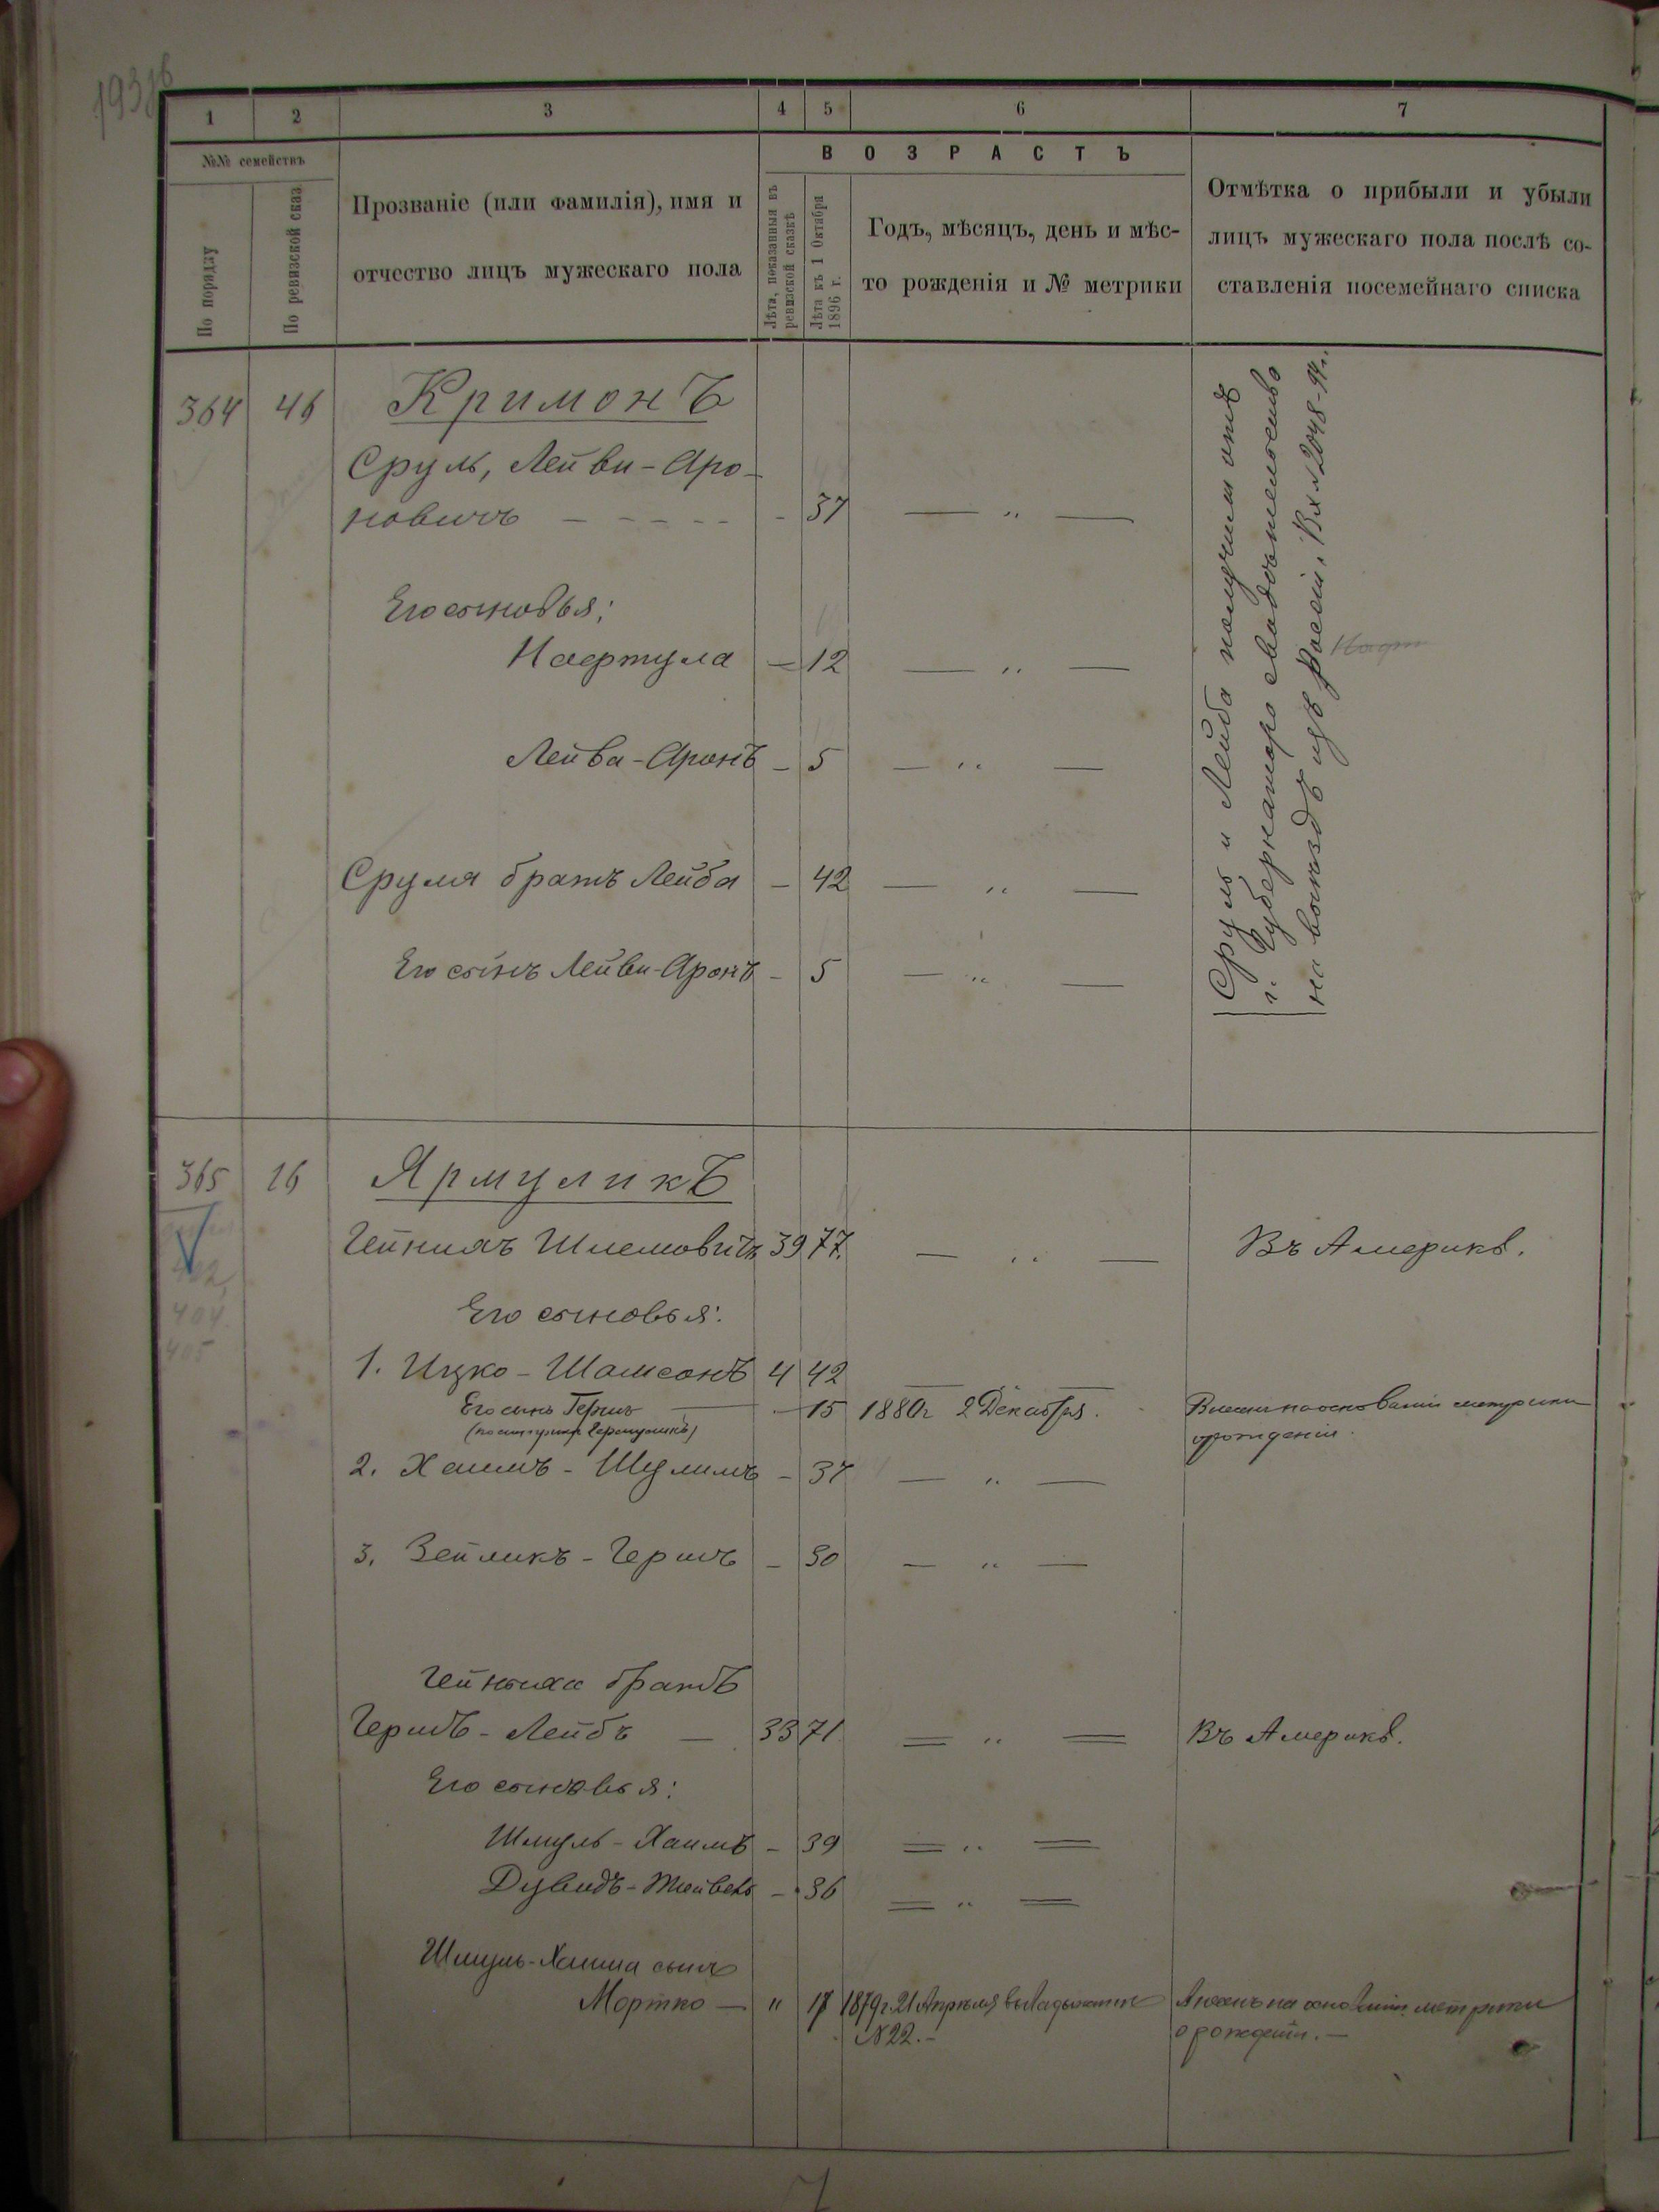 193об
1 2 3 4 5 6 7
№№ семействъ
По порядку
По ревизской сказ.
Прозваніе (или фамилія), имя и
отчество лицъ мужескаго пола
ВОЗРАСТЪ
Лѣта, показанныя въ
ревизской сказкѣ
Лѣта къ 1 Октября
1896 г.
Годъ, мѣсяцъ, день и мѣс-
то рожденія и № метрики
Отмѣтка о прибыли и убыли
лицъ мужескаго пола послѣ со-
ставленія посемейнаго списка
364 46 Кримонъ
Сруль, Лейви-Аро-
новичъ - - - - - - 37 — " —
Его сыновья:
Нафтула — 12 — " —
Лейва-Аронъ — 5 — " —
Сруля братъ Лейба — 42 — " —
Его сынъ Лейви-Аронъ — 5 — " —
Сруль и Лейба получили отъ
г. Губернатора свидѣтельство
на выѣздъ изъ Россіи. Вх. № 2048-94г.
365 16 Ярмуликъ
Гейнихъ Шлемовичъ 39 77. — " — Въ Америкѣ.
Его сыновья:
1. Ицко-Шамсонъ 4 42 — " —
Его сынъ Гершъ — 15 1880г 2 Декабря. Внесенъ на основаніи метрики
(по метрикѣ Гермуликъ)
о рожденіи.
2. Хаимъ-Шулимъ — 37 — " —
3. Зейликъ-Гершъ — 30 — " —
Гейниха братъ
Гершъ-Лейбъ — 33 71 = " = Въ Америкѣ.
Его сыновья:
Шмуль-Хаимъ — 39 = " =
Дувидъ-Тойвель — 36 = " =
Шмуль-Хаима сынъ
Мортко — " 17 1879г. 21 Апрѣля въ Ладыжинѣ Внесенъ на основаніи метрики
№ 22. — о рожденіи. —
402,
404
405